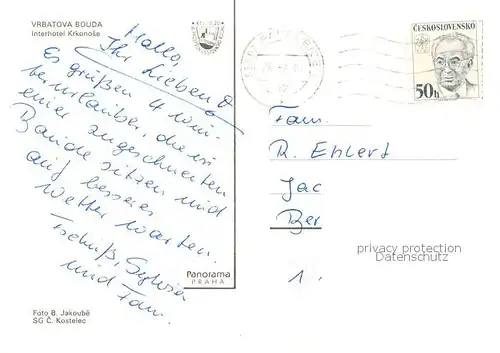 VRBATOVA BOUDA
Interhotel Krkonoše
Hallo,
Ihr Lieben
Es grüßen 4 Win-
terurlauber, die in
einer angeschneiten
Baude sitzen und
auf besseres
Wetter warten.
Tschüß, Sylvia
und Fam.
Panorama
PRAHA
Foto B. Jakoubě
SG Č. Kostelec
ČESKOSLOVENSKO
50h
Fam.
R. Ehlert
Jac
Ber
privacy protection
Datenschutz
1.